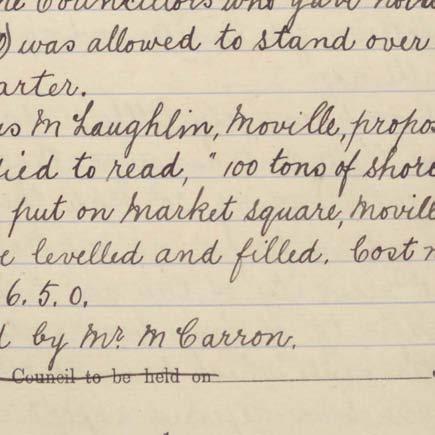 Councillors who gave
) was allowed to stand over
arter.
M Laughlin, Moville, propos
ied to read, " 100 tons of shore
put on Market Square, Movill
e levelled and filled. Cost
6. 5. 0.
d by Mr. M Carron.
Council to be held on